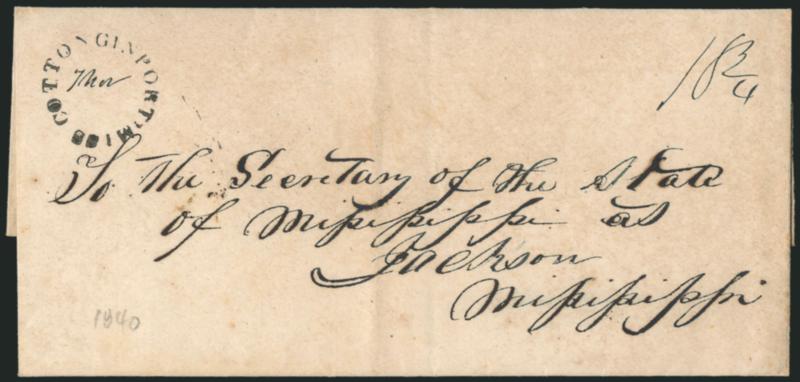 COTTON GIN PORT Miss
7 Nov
18 3/4
To the Secretary of the State
of Mississippi at
Jackson
Mississippi
1840